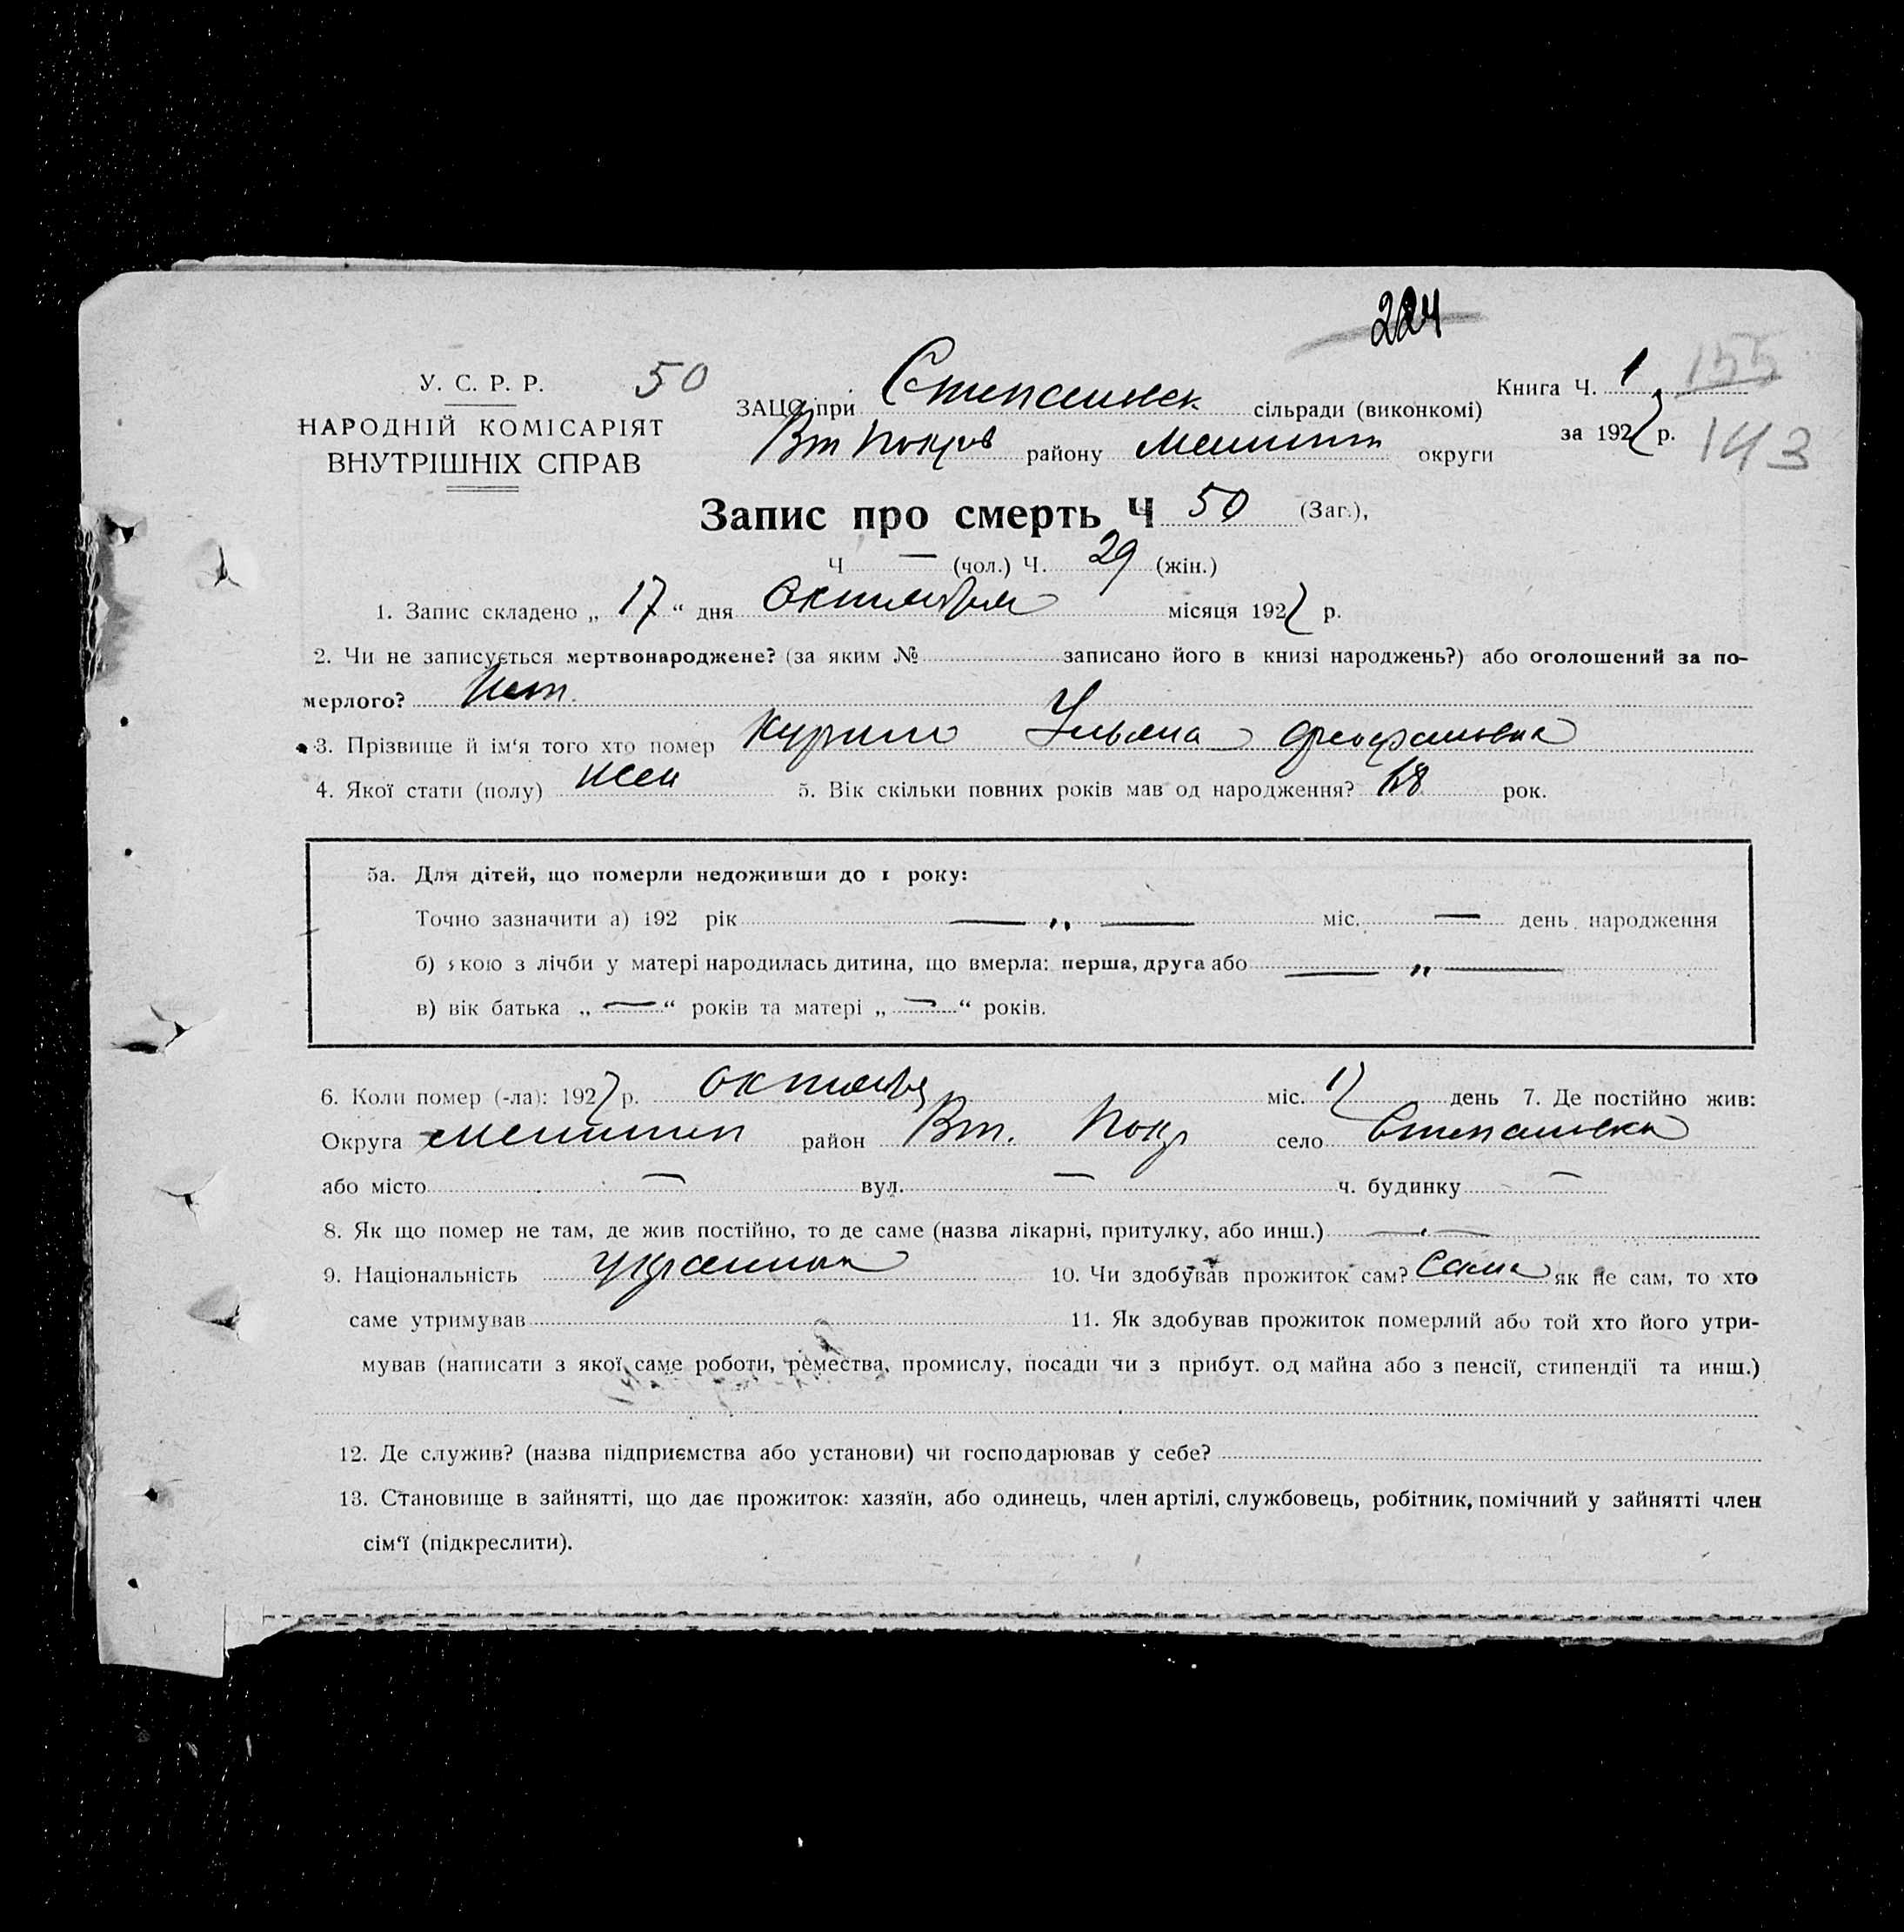 224
У. С. Р. Р. 50 ЗАЦС при Степановск сільради (виконкомі) Книга Ч. 1 155
НАРОДНІЙ КОМІСАРІЯТ Вт Покров району Мелитоп округи за 1927 р. 143
ВНУТРІШНІХ СПРАВ
Запис про смерть Ч 50 (Заг.),
Ч — (чол.) Ч. 29 (жін.)
1. Запис складено „ 17 “ дня Октября місяця 1927 р.
2. Чи не записується мертвонароджене? (за яким № записано його в книзі народжень?) або оголошений за по-
мерлого? Нет.
3. Прізвище й ім‘я того хто помер Ульяна
4. Якої стати (полу) жен 5. Вік скільки повних років мав од народження? рок.
5а. Для дітей, що померли недоживши до 1 року:
Точно зазначити а) 192 рік — „ — міс. — день народження
б) якою з лічби у матері народилась дитина, що вмерла: перша, друга або — „ —
в) вік батька „ — “ років та матері „ — “ років.
6. Коли помер (-ла): 1927 р. октября міс. 17 день 7. Де постійно жив:
Округа Мелитоп район Вт. Покр село Степановка
або місто — вул. — ч. будинку —
8. Як що помер не там, де жив постійно, то де саме (назва лікарні, притулку, або инш.) —
9. Національність 10. Чи здобував прожиток сам? Сама як не сам, то хто
саме утримував 11. Як здобував прожиток померлий або той хто його утри-
мував (написати з якої саме роботи, ремества, промислу, посади чи з прибут. од майна або з пенсії, стипендії та инш.)
12. Де служив? (назва підприємства або установи) чи господарював у себе?
13. Становище в зайнятті, що дає прожиток: хазяїн, або одинець, член артілі, службовець, робітник, помічний у зайнятті член
сім‘ї (підкреслити).